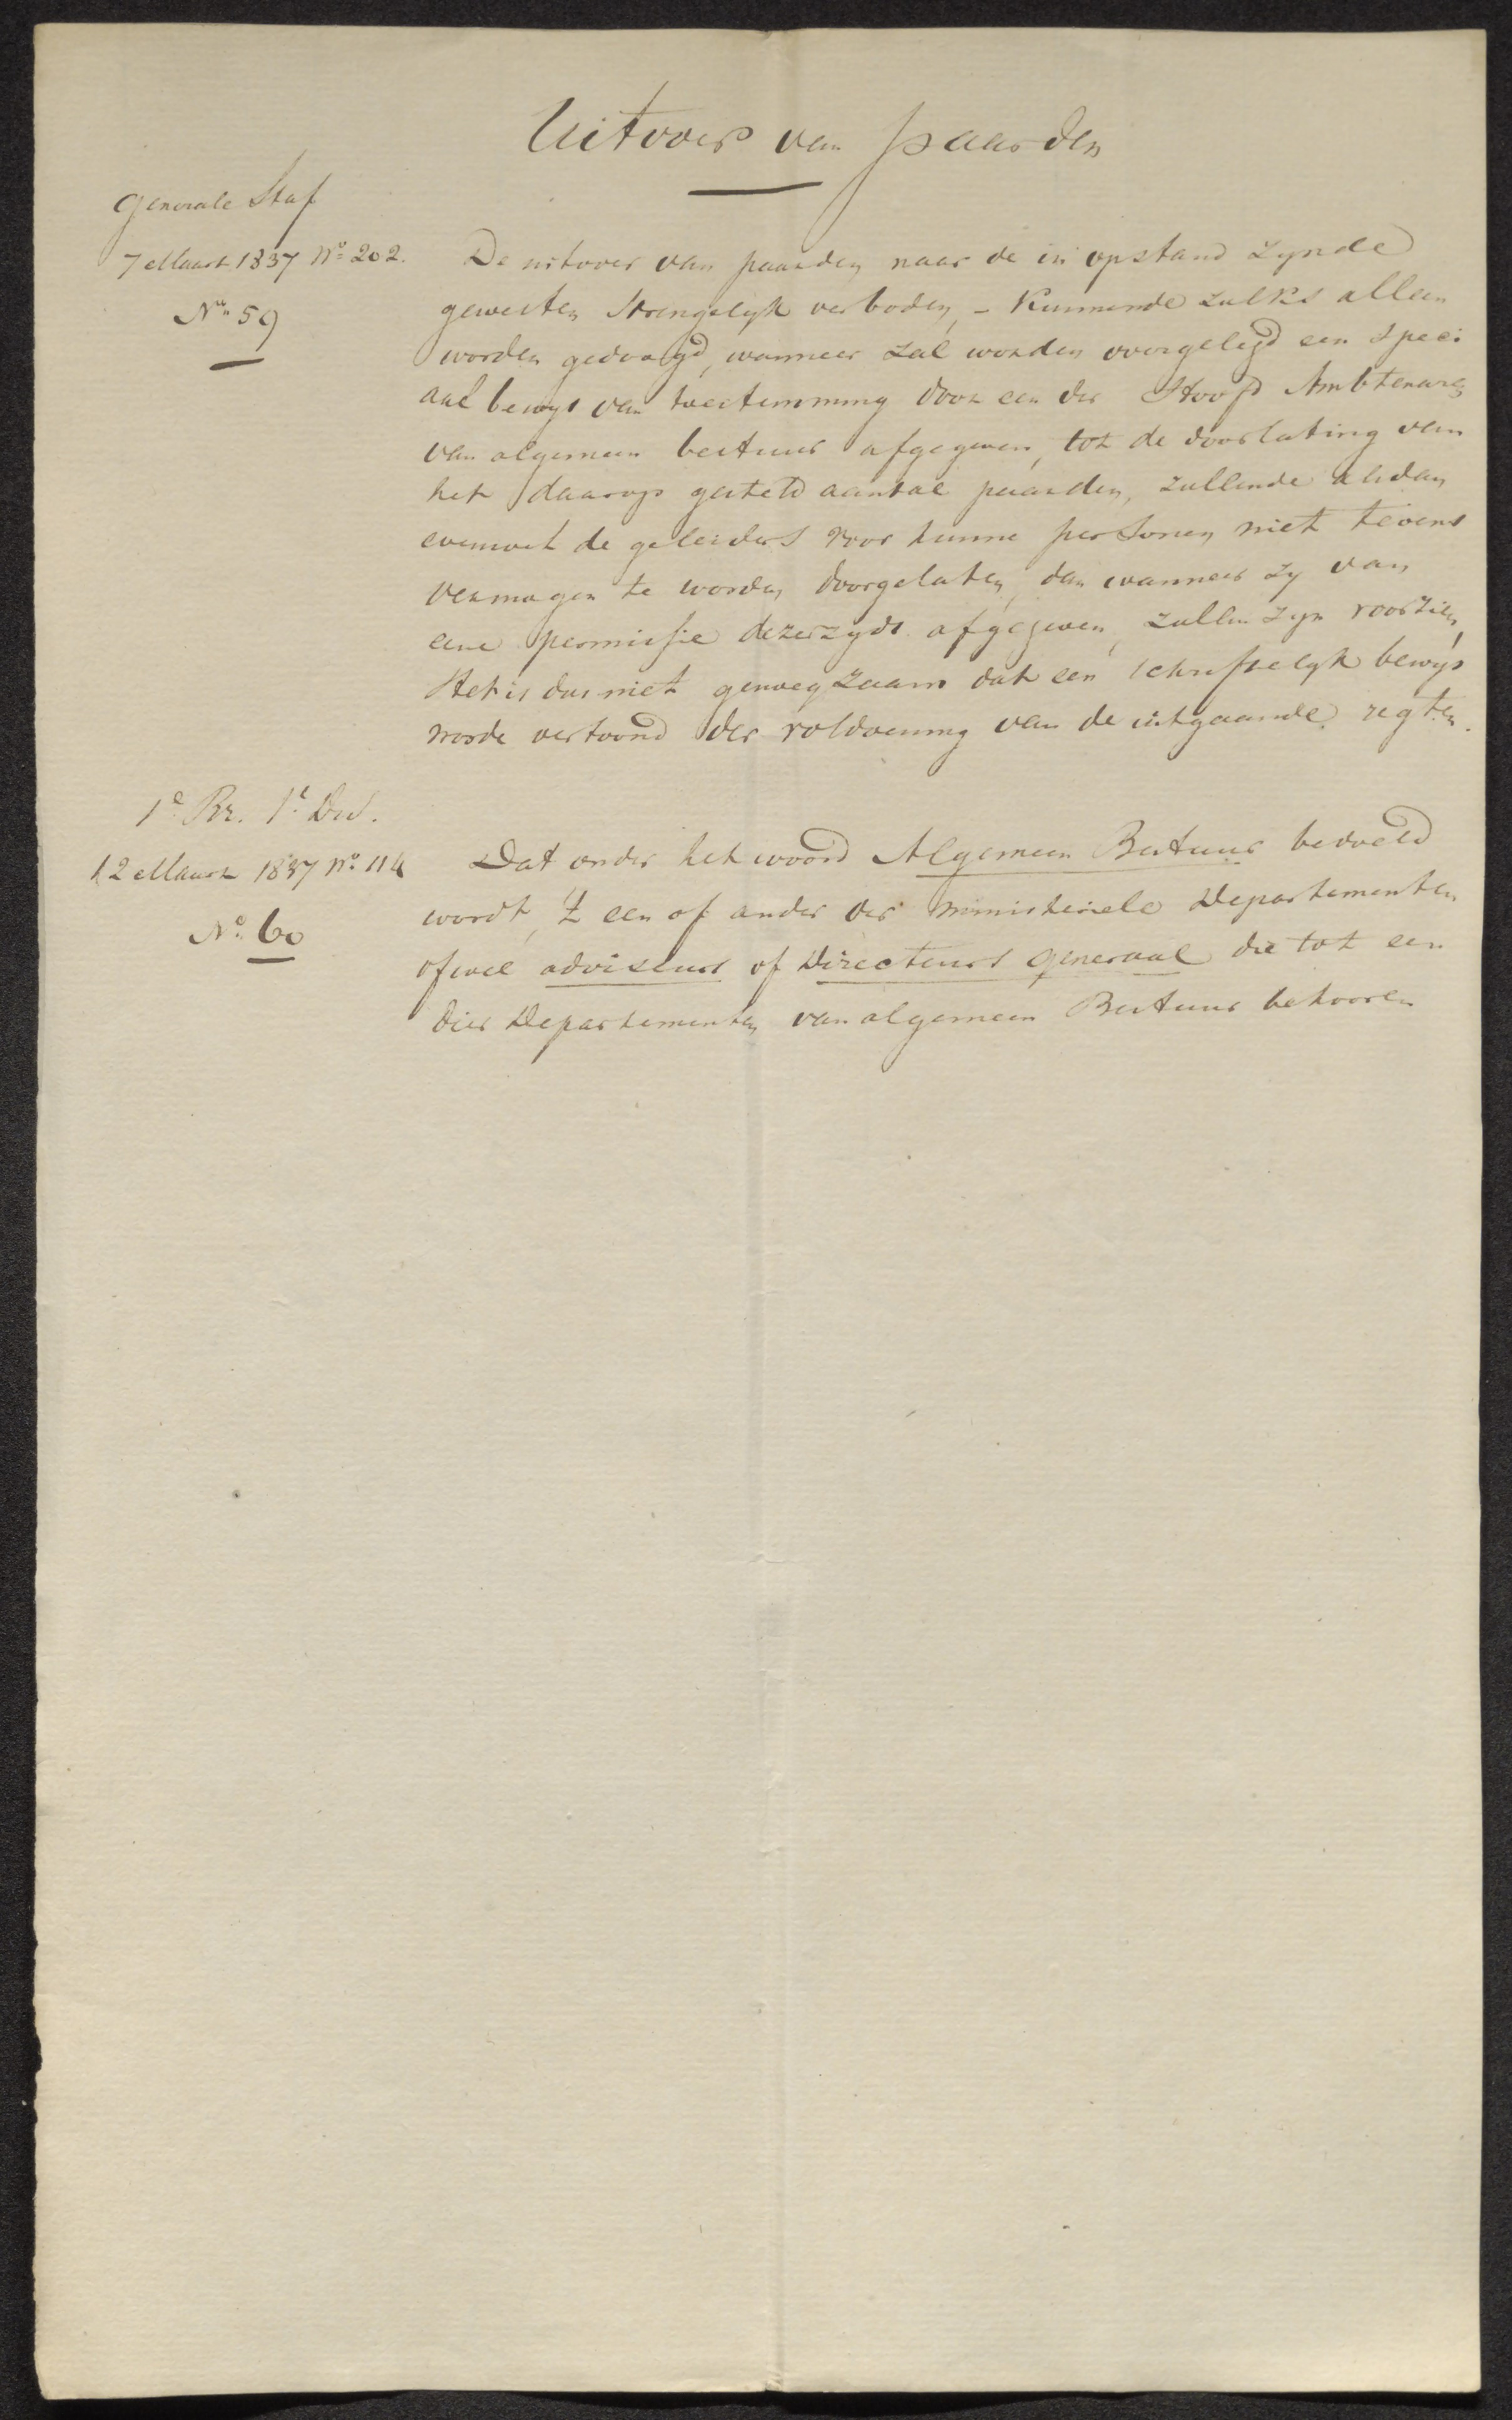 Uitvoer van paarden
Generale Staf
7 Maart 1837 No. 202.
No. 59
De uitvoer van paarden naar de in opstand zynde
gewesten strengelyk verboden, – kunnende zulks alleen
worden gedoogd, wanneer zal worden overgelegd een speci
aal bewys van toestemming door een der Hoofd Ambtenaren
van algemeen bestuur afgegeven, tot de doorlating van
het daarop gesteld aantal paarden, zullende alsdan
evenwel de geleiders voor hunne personen niet tevens
vermogen te worden doorgelaten, dan wanneer zy van
eene permissie dezerzyds afgegeven, zullen zyn voorzien,
Het is dus niet genoegzaam dat een schriftelyk bewys
worde vertoond der voldoening van de uitgaande regten.
1e Br. 1e Div.
12 Maart 1837 No. 114
No. 60
Dat onder het woord Algemeen Bestuur bedoeld
wordt, 't een of ander der ministeriele Departementen
ofwel adviseurs of Directeurs Generaal die tot een
dier Departementen van algemeen Bestuur behooren